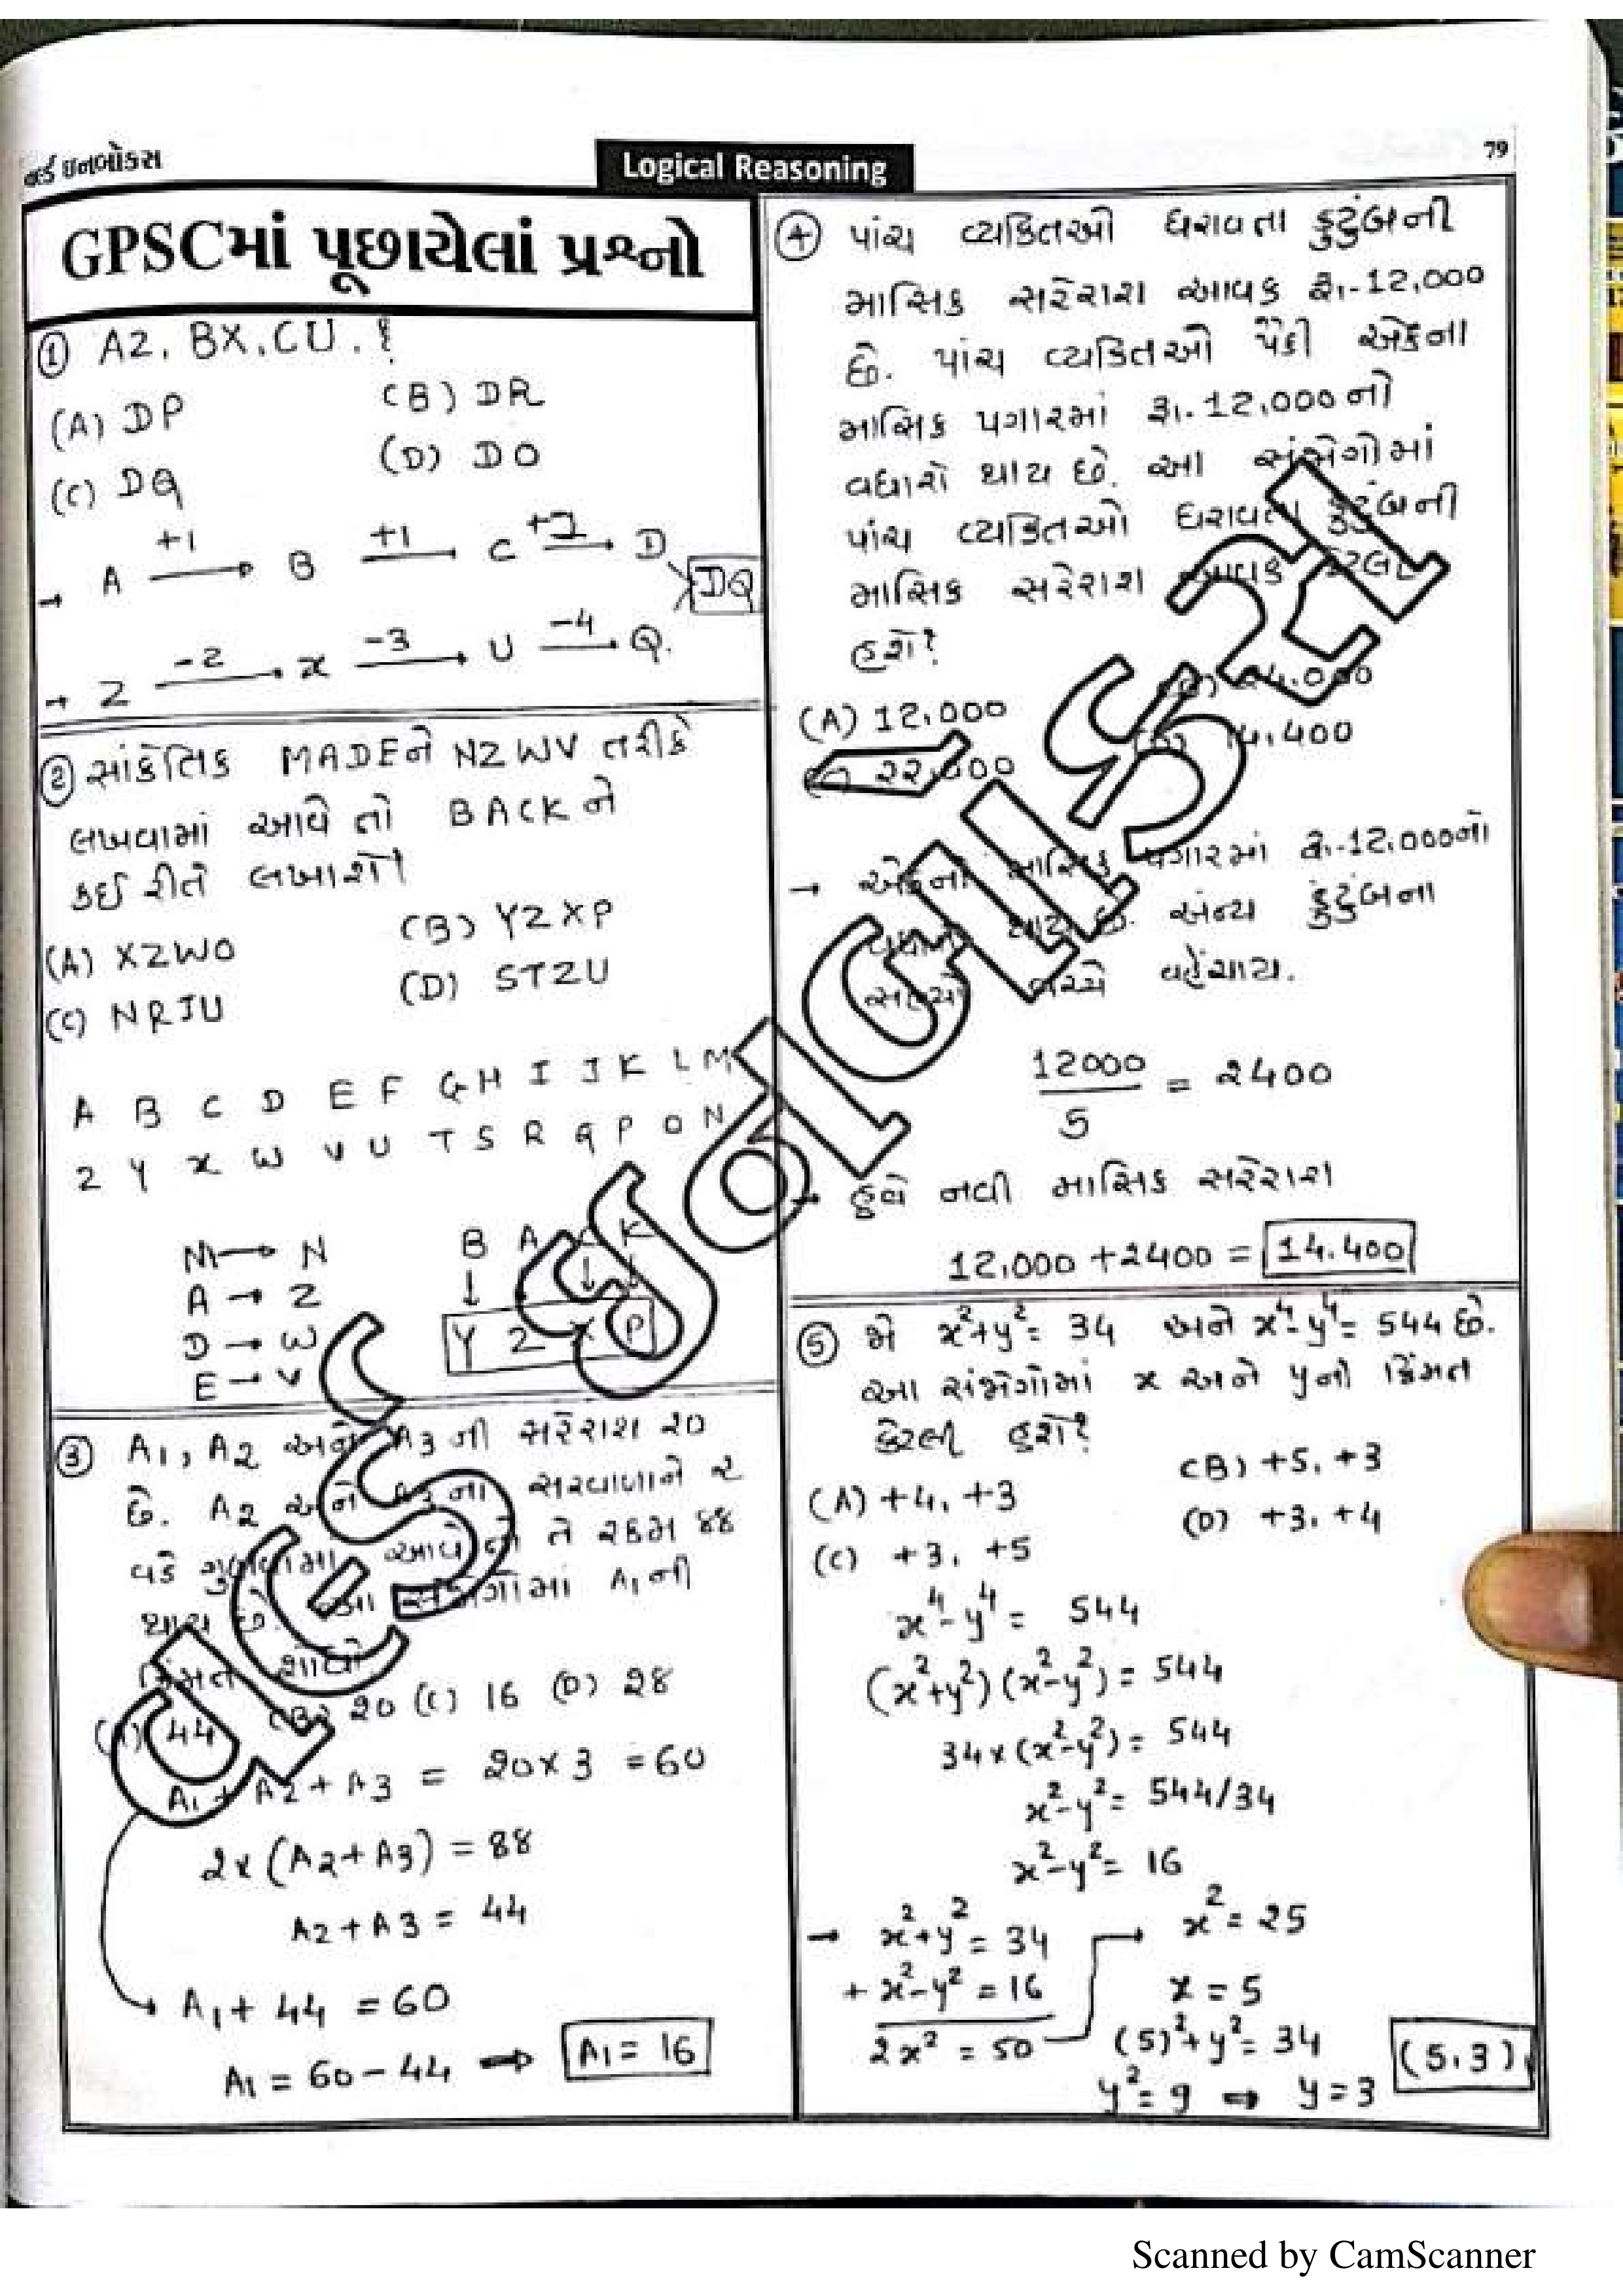 વર્લ્ડ ઇનબોક્સ
Logical Reasoning
79
GPSCમાં પૂછાયેલાં પ્રશ્નો
① AZ, BX, CU, ?
(A) DP (B) DR
(C) DQ (D) DO
→ A +1 → B +1 → C +1 → D
DQ
→ Z -2 → X -3 → U -4 → Q.
② સાંકેતિક MADEને NZWV તરીકે
લખવામાં આવે તો BACKને
કઈ રીતે લખાશે?
(A) XZWO (B) YZXP
(C) NRJU (D) STZU
A B C D E F G H I J K L M
Z Y X W V U T S R Q P O N
M → N B A C K
A → Z ↓
D → W Y Z X P
E → V
③ A1, A2 અને A3ની સરેરાશ 20
છે. A2 અને A3ના સરવાળાને 2
વડે ગુણવામાં આવે તો તે રકમ 88
થાય છે. આ સંજોગોમાં A1ની
કિંમત શોધો
(A) 44 (B) 20 (C) 16 (D) 28
A1 + A2 + A3 = 20 x 3 = 60
2 x (A2 + A3) = 88
A2 + A3 = 44
→ A1 + 44 = 60
A1 = 60 - 44 ⇒ A1 = 16
④ પાંચ વ્યકિતઓ ધરાવતા કુટુંબની
માસિક સરેરાશ આવક રૂા.-12,000
છે. પાંચ વ્યકિતઓ પૈકી એકના
માસિક પગારમાં રૂા.-12,000નો
વધારો થાય છે. આ સંજોગોમાં
પાંચ વ્યકિતઓ ધરાવતા કુટુંબની
માસિક સરેરાશ આવક કેટલી
હશે?
(A) 12,000 (B) 24,000
(C) 22,000 (D) 14,400
→ એકના માસિક પગારમાં રૂા.-12,000નો
વધારો થાય છે. અન્ય કુટુંબના
સભ્યો વચ્ચે વહેંચાય.
12000 / 5 = 2400
→ હવે નવી માસિક સરેરાશ
12,000 + 2400 = 14,400
⑤ જો x²+y² = 34 અને x⁴-y⁴ = 544 છે.
આ સંજોગોમાં x અને yની કિંમત
કેટલી હશે?
(A) +4, +3 (B) +5, +3
(C) +3, +5 (D) +3, +4
x⁴-y⁴ = 544
(x²+y²)(x²-y²) = 544
34 x (x²-y²) = 544
x²-y² = 544/34
x²-y² = 16
→ x²+y² = 34
+ x²-y² = 16
2x² = 50
→ x² = 25
x = 5
(5)²+y² = 34
y² = 9 ⇒ y = 3
(5,3)
Scanned by CamScanner